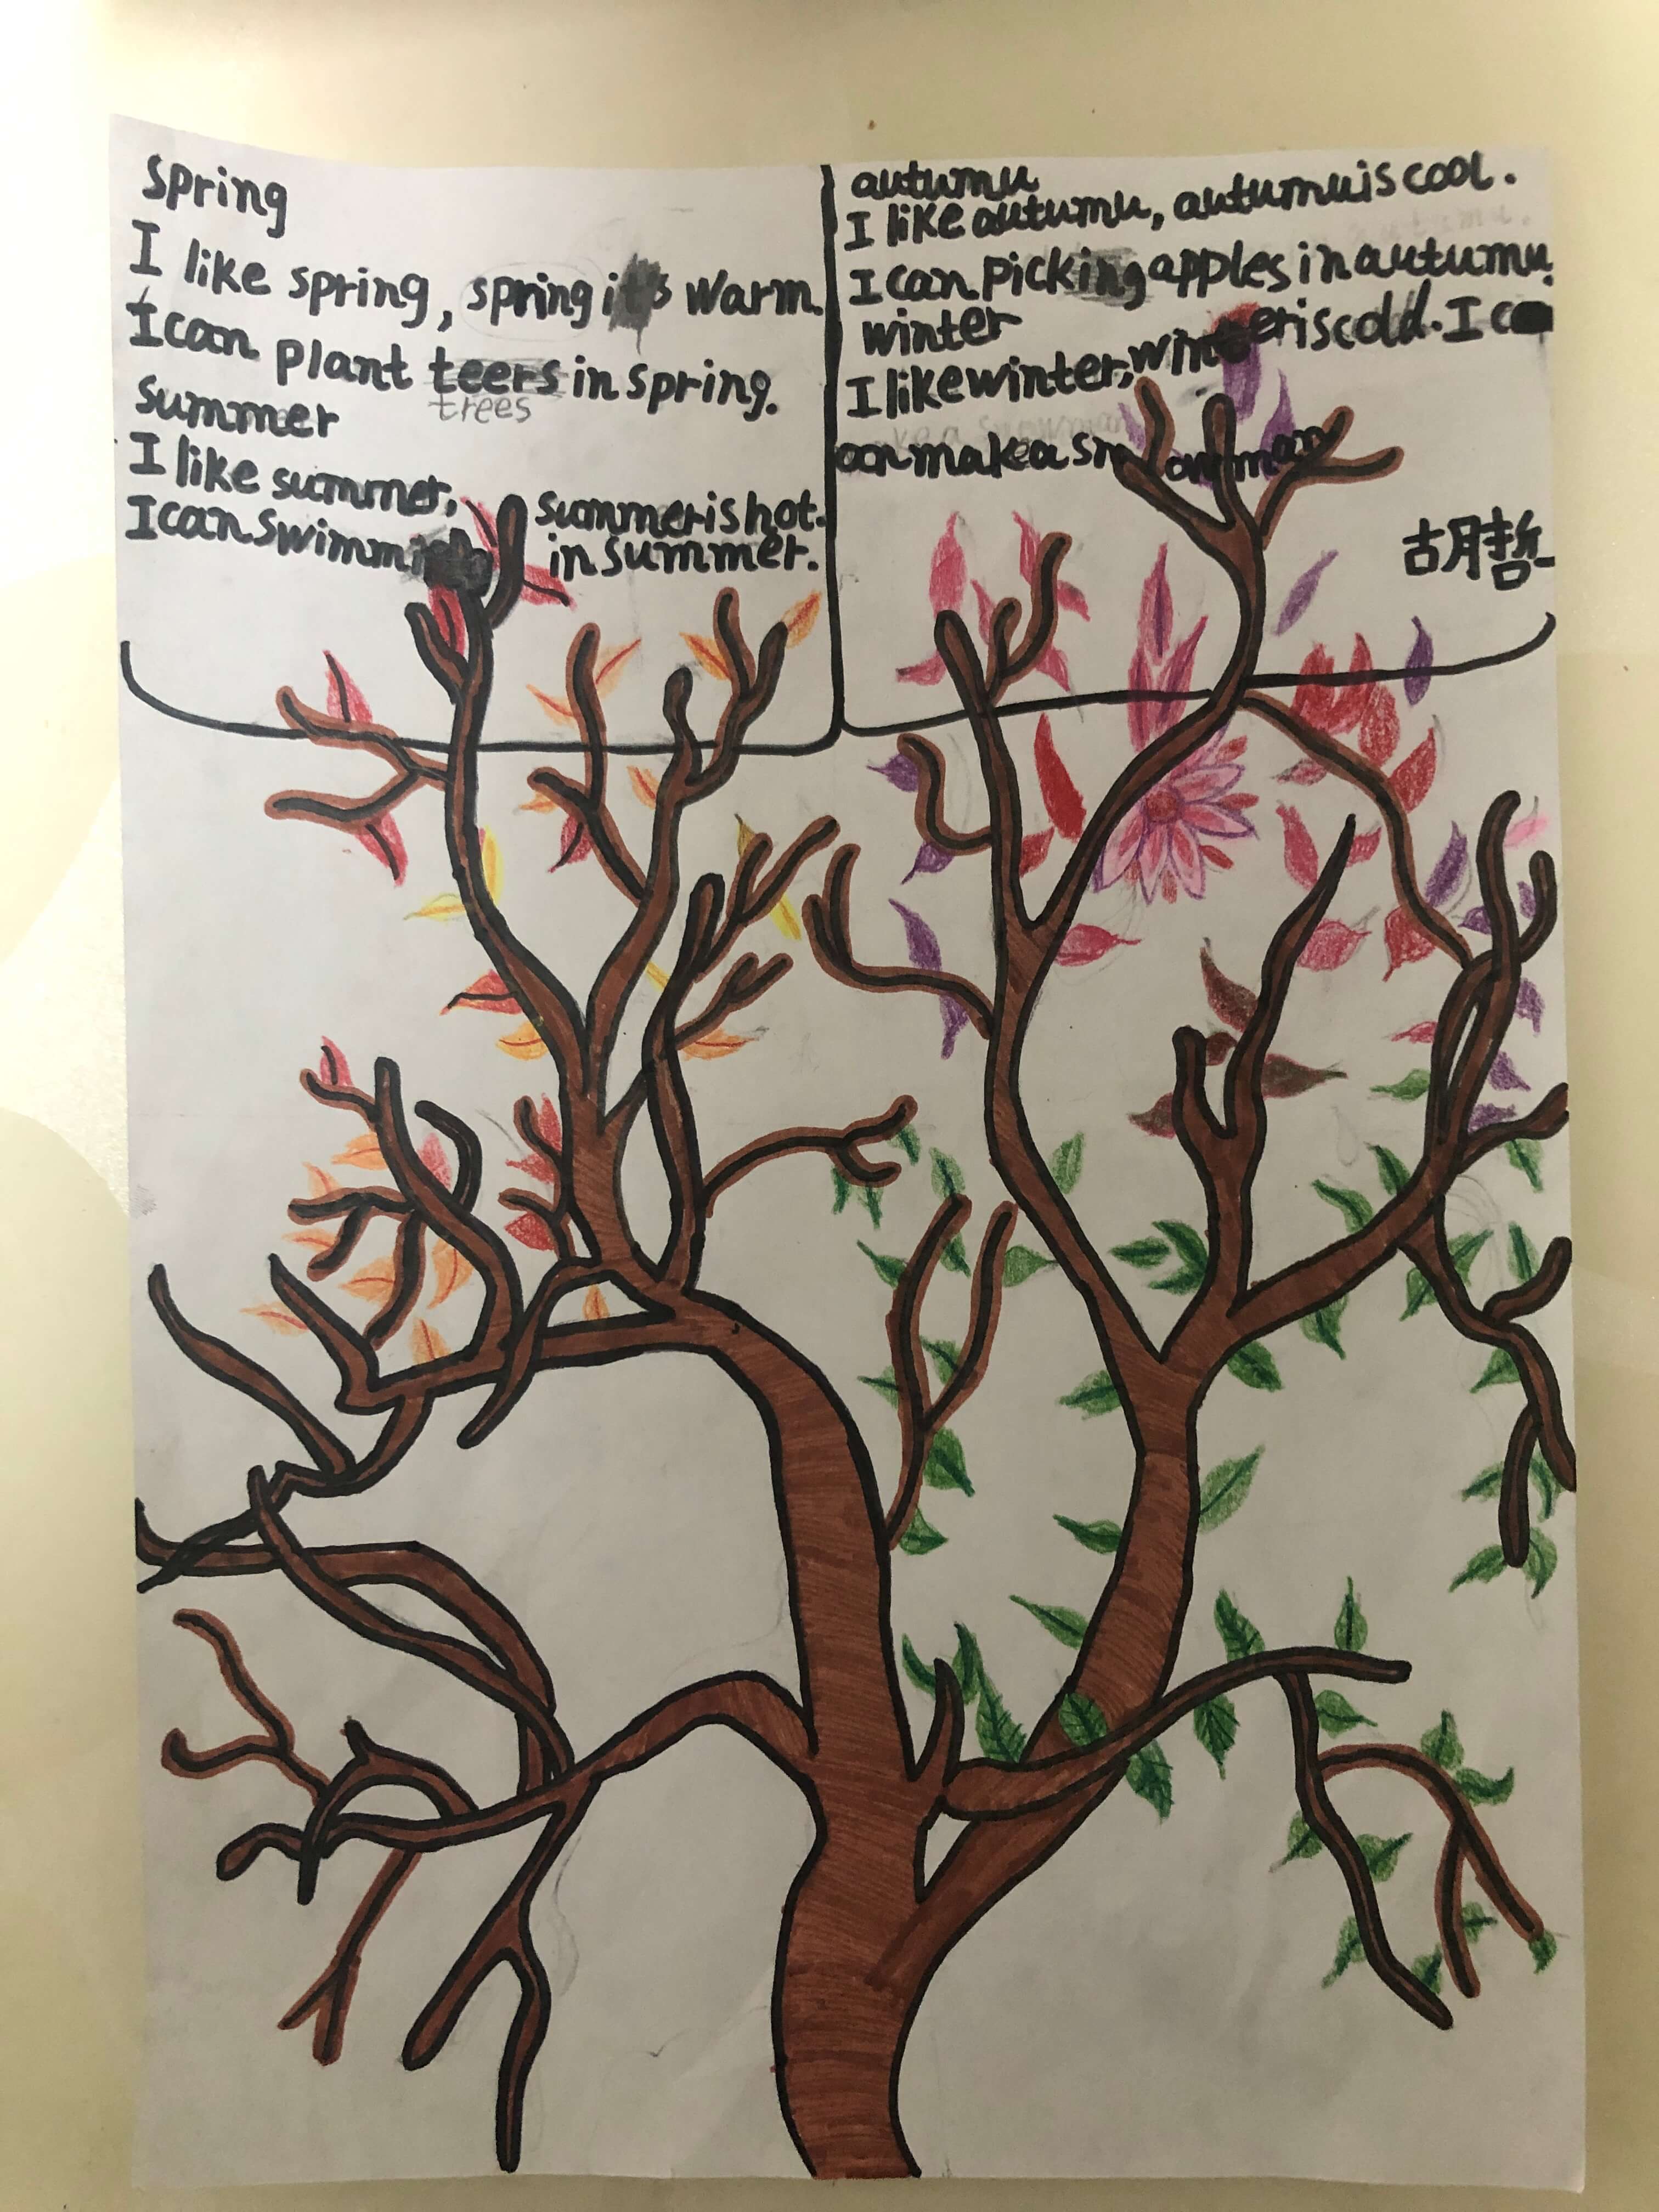 spring
I like spring, spring it's warm.
I can plant teers in spring.
trees
summer
I like summer, summer is hot.
I can swimming in summer.
autumu
I like autumu, autumu is cool.
I can picking apples in autumu.
winter
I like winter, winter is cold. I
can make a snowman
胡哲